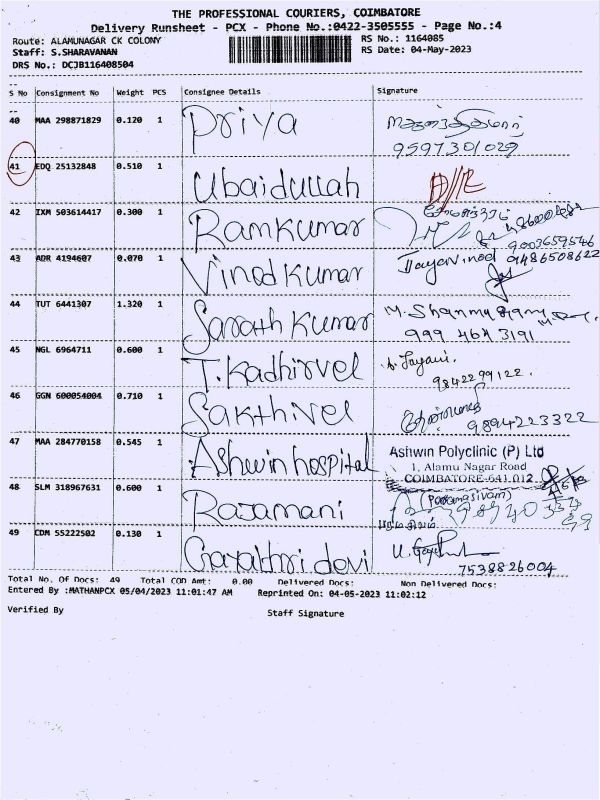 THE PROFESSIONAL COURIERS, COIMBATORE
Delivery Runsheet - PCX - Phone No.:0422-3505555 - Page No.:4
Route: ALAMUNAGAR CK COLONY RS No.: 1164085
Staff: S.SHARAVANAN RS Date: 04-May-2023
DRS No.: DCJB116408504
S No Consignment No Weight PCS Consignee Details Signature
40 MAA 298871829 0.120 1 Priya
9597301029
41 EDQ 25132848 0.510 1 Ubaidullah
42 IXM 503614417 0.300 1 Ramkumar
9003659546
43 ADR 4194607 0.070 1 Vinod Kumar 9486508622
44 TUT 6441307 1.320 1 Sarath Kumar
999 464 3191
45 NGL 6964711 0.600 1 T. Kadhirvel
9842299122.
46 GGN 600054004 0.710 1 Sakthivel
9894223322
47 MAA 284770158 0.545 1 Ashwin hospital Ashwin Polyclinic (P) Ltd
1, Alamu Nagar Road
COIMBATORE-641 012
48 SLM 318967631 0.600 1 Rajamani (Paramasivam)
49 CDM 55222502 0.130 1 Gayathri devi
7538826004
Total No. Of Docs: 49 Total COD Amt: 0.00 Delivered Docs: Non Delivered Docs:
Entered By :MATHANPCX 05/04/2023 11:01:47 AM Reprinted On: 04-05-2023 11:02:12
Verified By Staff Signature